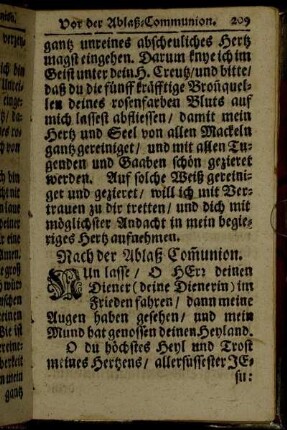 Vor der Ablaß-Communion. 209
gantz unreines abscheuliches Hertz
magst eingehen. Darum knye ich im
Geist unter dein H. Creutz/ und bitte/
daß du die fünff kräfftige Bronquel-
len deines rosenfarben Bluts auf
mich lassest abfliessen/ damit mein
Hertz und Seel von allen Mackeln
gantz gereiniget/ und mit allen Tu-
genden und Gaaben schön gezieret
werden. Auf solche Weiß gereini-
get und gezieret/ will ich mit Ver-
trauen zu dir tretten/ und dich mit
möglichster Andacht in mein begie-
riges Hertz aufnehmen.
Nach der Ablaß Com̃union.
NUn lasse/ O HErr deinen
Diener (deine Dienerin) im
Frieden fahren/ dann meine
Augen haben gesehen/ und mein
Mund hat genossen deinen Heyland.
O du höchstes Heyl und Trost
meines Hertzens/ allersüssester JE-
su: